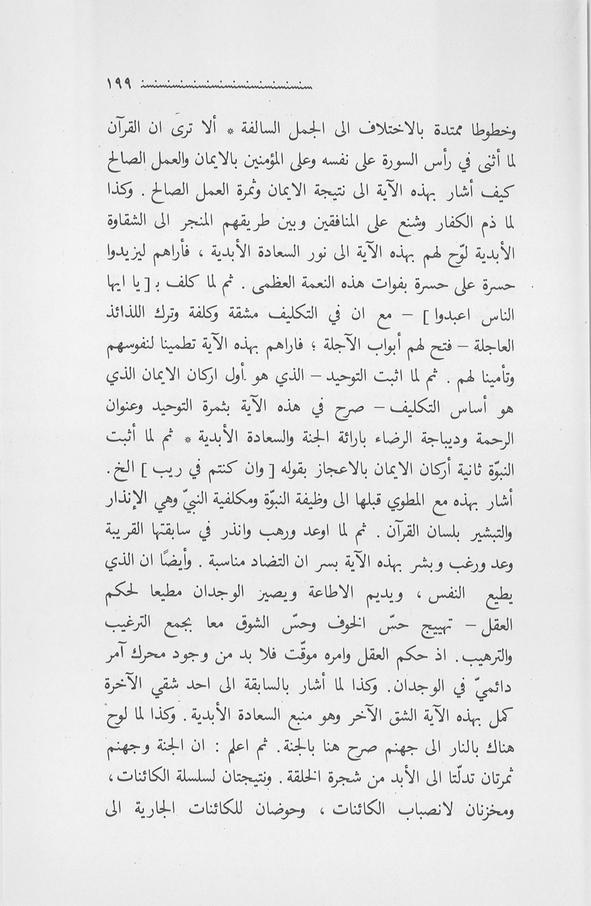 ١٩٩
وخطوطا ممتدة بالاختلاف الى الجمل السالفة * ألا ترى ان القرآن
لما أثنى في رأس السورة على نفسه وعلى المؤمنين بالايمان والعمل الصالح
كيف أشار بهذه الآية الى نتيجة الايمان وثمرة العمل الصالح . وكذا
لما ذم الكفار وشنع على المنافقين وبين طريقهم المنجر الى الشقاوة
الأبدية لوّح لهم بهذه الآية الى نور السعادة الأبدية ، فأراهم ليزيدوا
حسرة على حسرة بفوات هذه النعمة العظمى . ثم لما كلف بـ [ يا ايها
الناس اعبدوا ] – مع ان في التكليف مشقة وكلفة وترك اللذائذ
العاجلة – فتح لهم أبواب الآجلة ؛ فاراهم بهذه الآية تطمينا لنفوسهم
وتأمينا لهم . ثم لما اثبت التوحيد – الذي هو أول اركان الايمان الذي
هو أساس التكليف – صرح في هذه الآية بثمرة التوحيد وعنوان
الرحمة وديباجة الرضاء بارائة الجنة والسعادة الأبدية * ثم لما أثبت
النبوّة ثانية أركان الايمان بالاعجاز بقوله [ وان كنتم في ريب ] الخ .
أشار بهذه مع المطوي قبلها الى وظيفة النبوّة ومكلفية النبيّ وهي الإنذار
والتبشير بلسان القرآن . ثم لما اوعد ورهب وانذر في سابقتها القريبة
وعد ورغب وبشر بهذه الآية بسر ان التضاد مناسبة . وأيضًا ان الذي
يطيع النفس ، ويديم الاطاعة ويصير الوجدان مطيعا لحكم
العقل – تهييج حسّ الخوف وحسّ الشوق معا بجمع الترغيب
والترهيب . اذ حكم العقل وامره موقّت فلا بد من وجود محرك آمر
دائميّ في الوجدان . وكذا لما أشار بالسابقة الى احد شقي الآخرة
كمل بهذه الآية الشق الآخر وهو منبع السعادة الأبدية . وكذا لما لوح
هناك بالنار الى جهنم صرح هنا بالجنة . ثم اعلم : ان الجنة وجهنم
ثمرتان تدلّتا الى الأبد من شجرة الخلقة . ونتيجتان لسلسلة الكائنات ،
ومخزنان لانصباب الكائنات ، وحوضان للكائنات الجارية الى